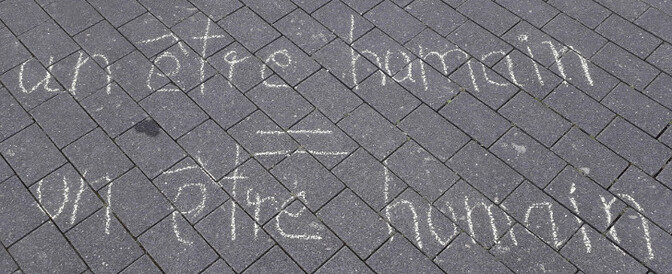 un être humain
=
un être humain